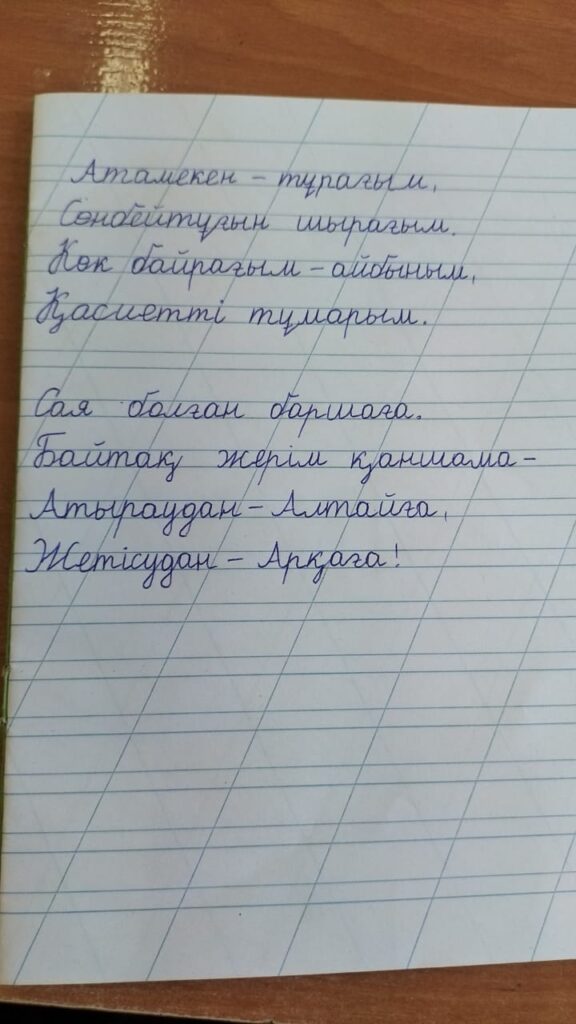 Атамекен – тұрағым,
Сөнбейтұғын шырағым.
Көк байрағым – айбыным,
Қасиетті тұмарым.
Сая болған баршаға.
Байтақ жерім қаншама –
Атыраудан – Алтайға,
Жетісудан – Арқаға!